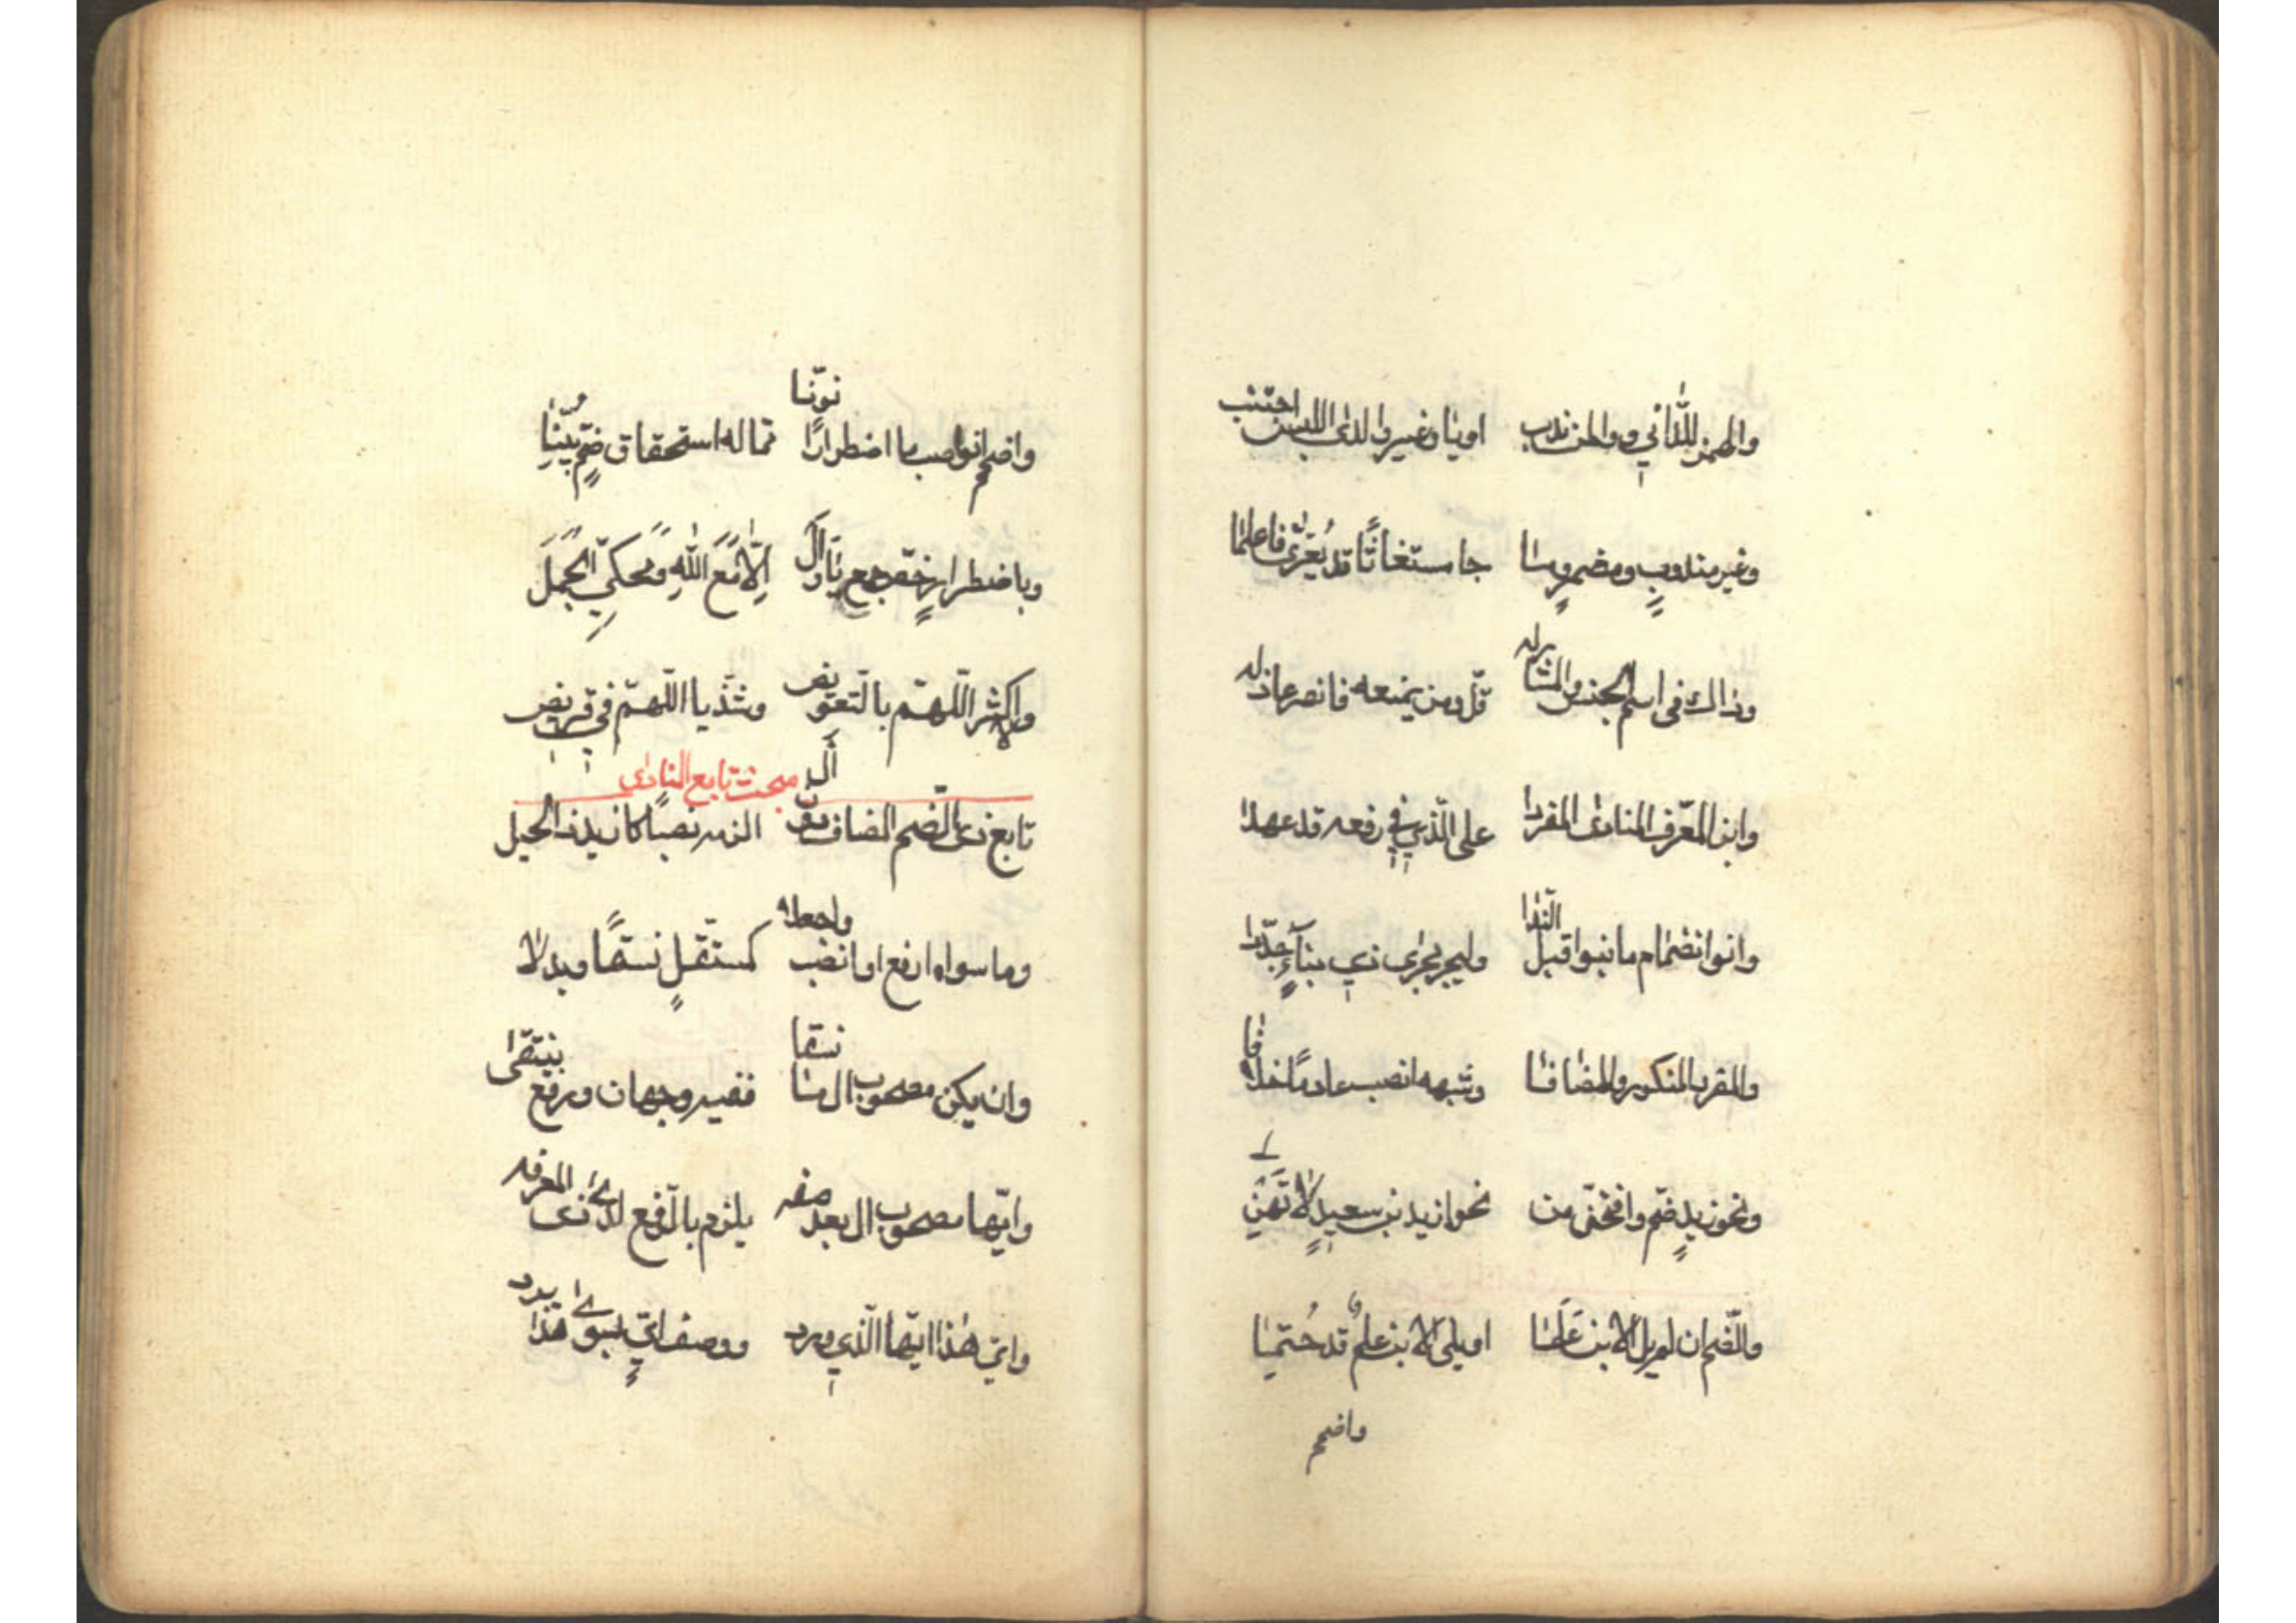 والهمز للدّاني ووا لمن ندب او يا وغير وا لدى اللبس اجتنب
وغير مندوبٍ ومضمرٍ وما جا مستغاثًا قد يُعَرّى فاعلما
وذاك في اسم الجنس والمشار له قلّ ومن يمنعه فانصر عاذله
وابن المعرّف المنادى المفردا على الّذي في رفعه قد عهدا
وانو انضمام ما بنوا قبل النّدا وليجر مجرى ذي بناءٍ جدّدا
والمفرد المنكور والمضافا وشبهه انصب عادمًا خلافا
ونحو زيدٍ ضمّ وافتحنّ من نحو ازيد بن سعيدٍ لا تَهَنِ
والضّم ان لم يل الابن عَلَما او يلي الابن علم قد حُتما
واضمم
واضمم او انصب ما اضطرارًا نوّنا ممّا له استحقاق ضمٍّ بيّنا
وباضطرارٍ خصّ جمع يا وال الّا مَعَ اللّهِ ومحكيّ الجُمَل
والاكثر اللّهمّ بالتّعويض وشذّ يا اللّهمّ في قريض
مبحث تابع المنادى
تابع ذى الضّم المضاف دون أل الزمه نصبًا كازيد ذا الحيل
وما سواه ارفع او انصب واجعلا كمستقلٍ نسقًا وبدلا
وان يكن مصحوب ال ما نسقا ففيه وجهان ورفع ينتقى
وايّها مصحوب ال بعد صفه يلزم بالرّفع لدى ذى المعرفه
وايّ هذا ايّها الّذي ورد ووصف ايٍّ بسوى هذا يرد